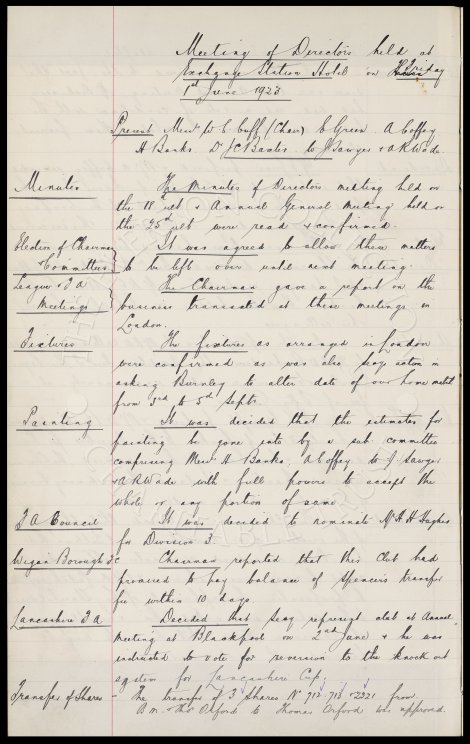 Meeting of Directors held at
Exchange Station Hotel on Friday
1st June 1923
Present Messrs W C Cuff (Chair) E Green. A Coffey
H Banks. Dr J C Baxter. W J Sawyer & A R Wade.
Minutes
The Minutes of Directors meeting held on
the 18th ult & Annual General Meeting held on
the 25th ult were read & confirmed.
Election of Chairman
& Committees
It was agreed to allow these matters
to be left over until next meeting.
League & F A
Meetings
The Chairman gave a report on the
business transacted at these meetings in
London.
Fixtures
The fixtures as arranged in London
were confirmed as was also Secy action in
asking Burnley to alter date of our home match
from 3rd to 5th Septr.
Painting
It was decided that the estimates for
painting be gone into by a sub committee
comprising Messrs H Banks. A Coffey W J Sawyer
& A R Wade with full powers to accept the
whole or any portion of same.
F A Council
It was decided to nominate Mr H H Hughes
for Division 3.
Wigan Borough F C
Chairman reported that this club had
promised to pay balance of Spencers transfer
fee within 10 days.
Lancashire F A
Decided that Secy represent club at Annual
Meeting at Blackpool on 2nd June & he was
instructed to vote for reversion to the knock out
system for Lancashire Cup.
Transfer of Shares -
The transfer of 3 Shares No 712 713 & 2321 from
B. M. & Thos Orford to Thomas Orford was approved.